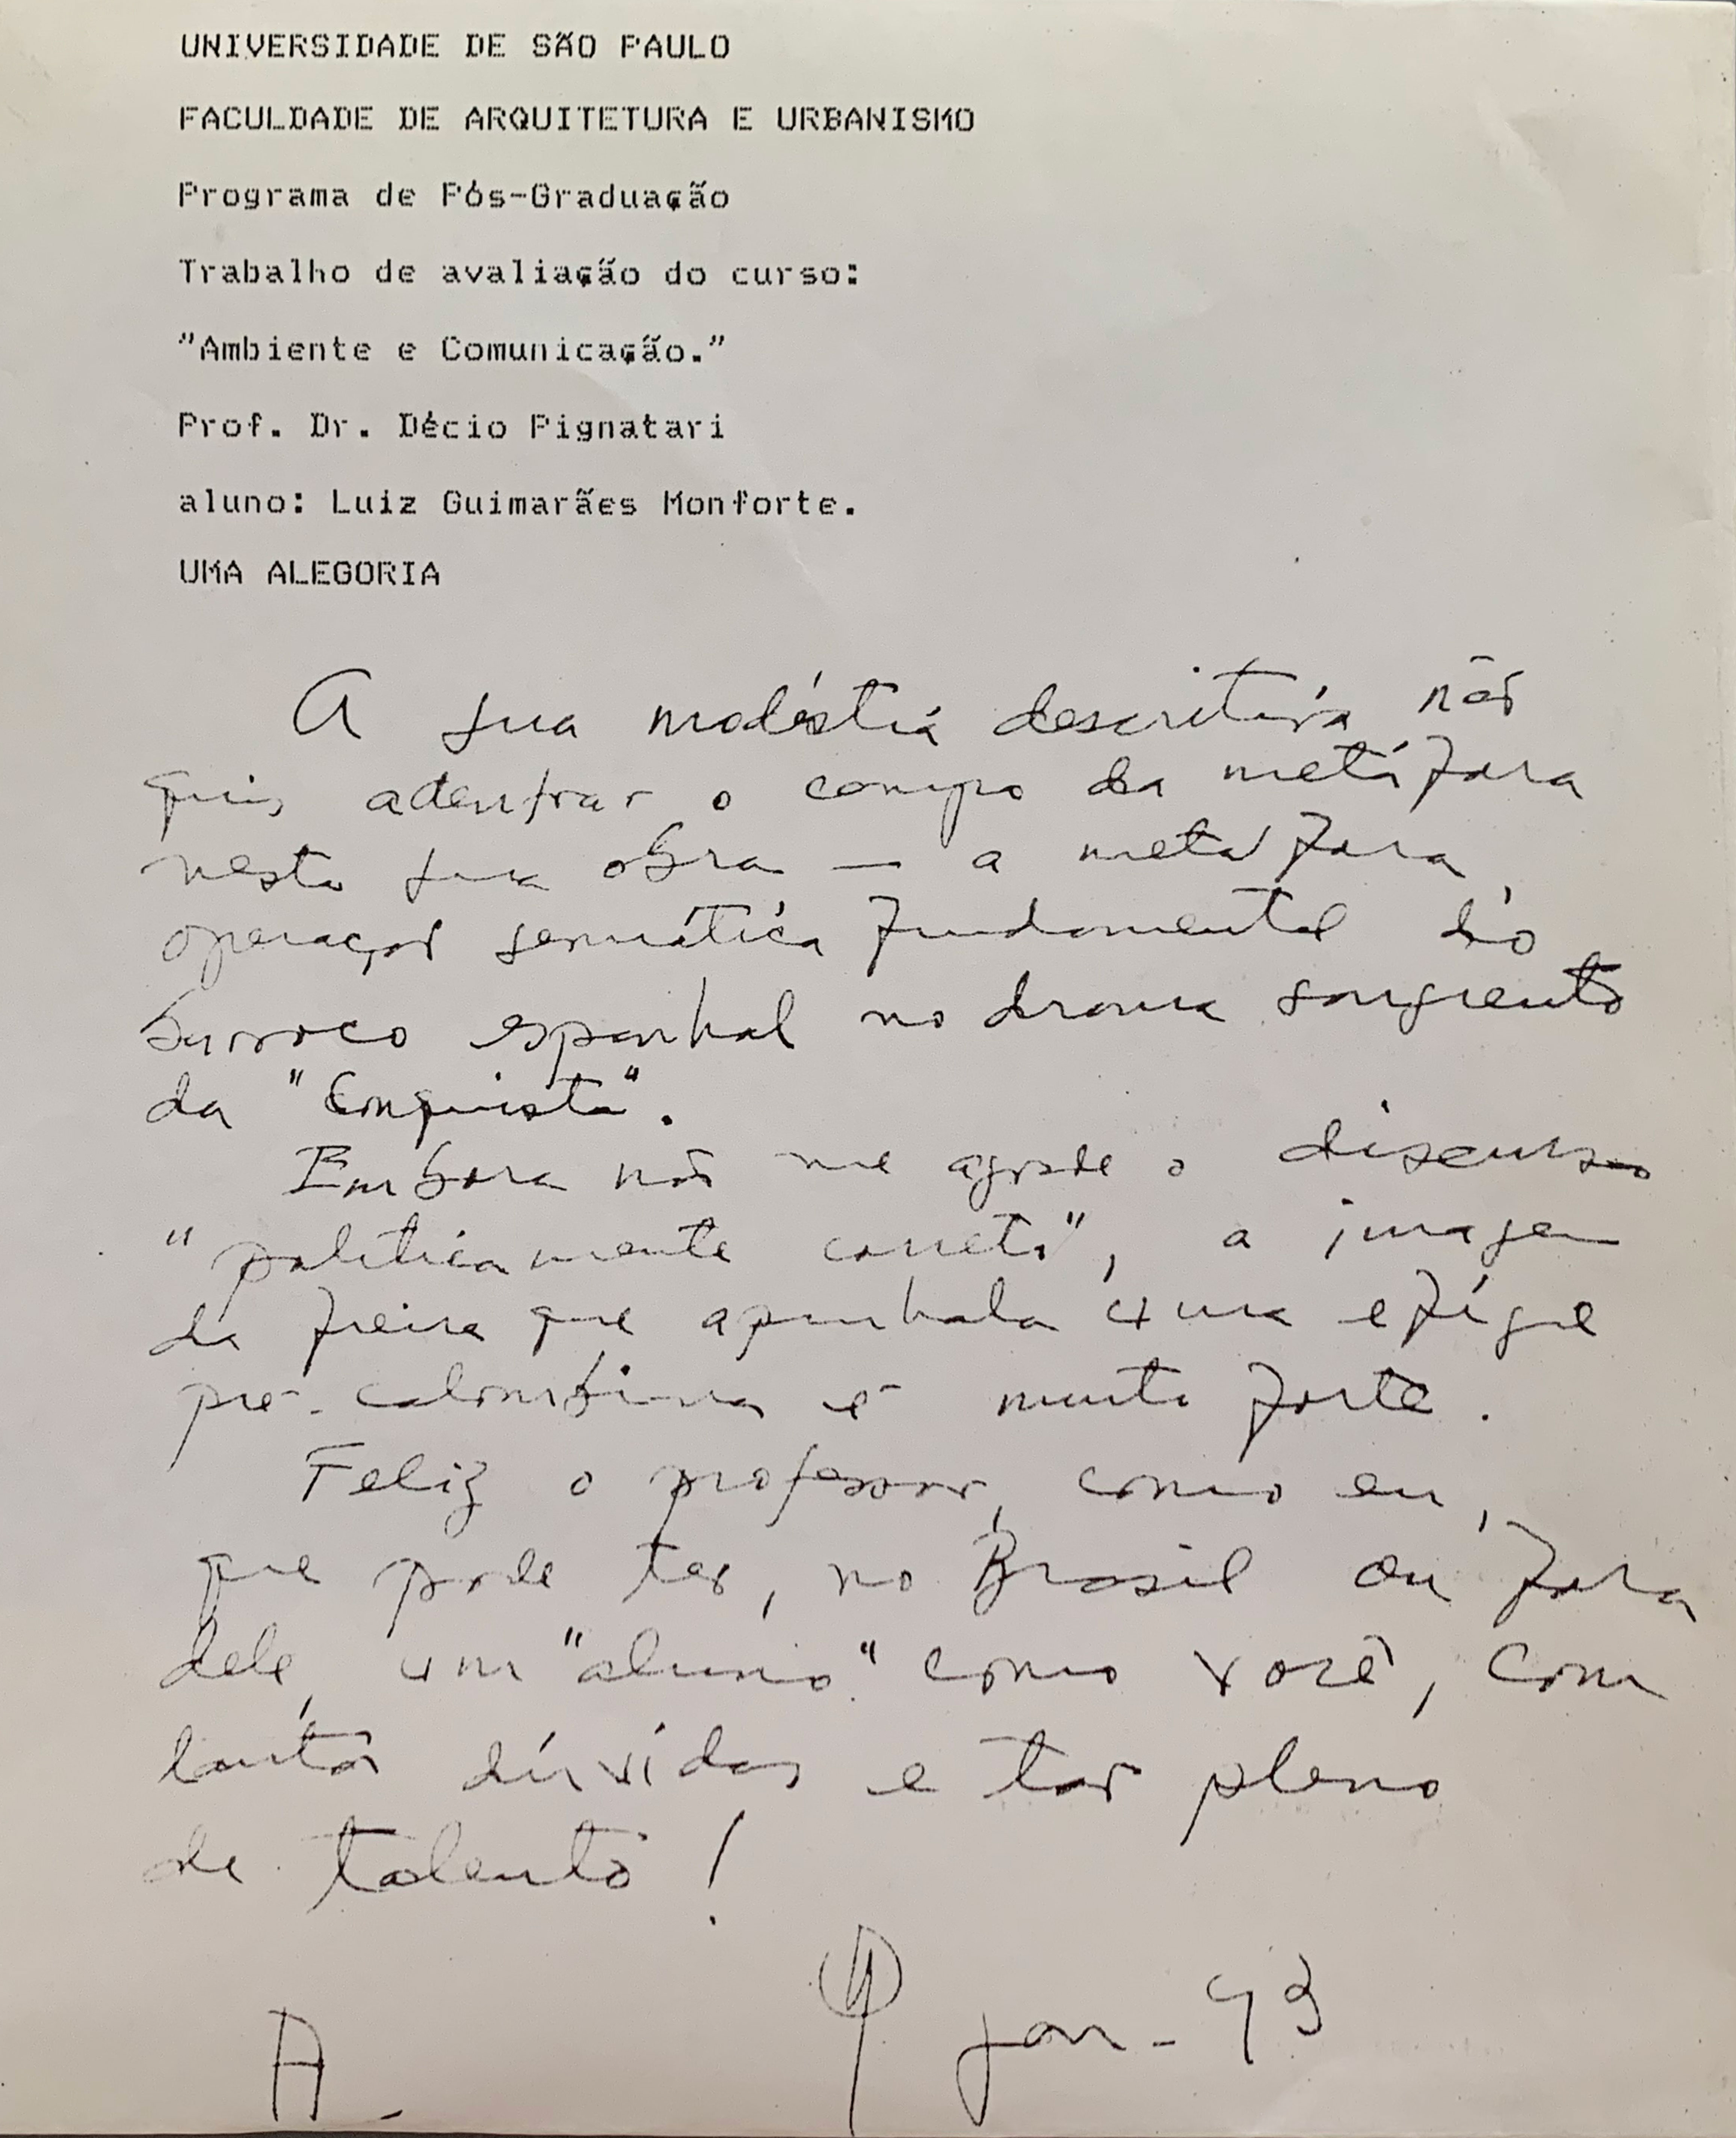 UNIVERSIDADE DE SÃO PAULO
FACULDADE DE ARQUITETURA E URBANISMO
Programa de Pós-Graduação
Trabalho de avaliação do curso:
"Ambiente e Comunicação."
Prof. Dr. Décio Pignatari
aluno: Luiz Guimarães Monforte.
UMA ALEGORIA
A sua modéstia descritiva não
quis adentrar o campo da metáfora
nesta sua obra — a metáfora,
operação semântica fundamental do
barroco espanhol no drama sangrento
da "Conquista".
Embora não me agrade o discurso
"politicamente correto", a imagem
da freira que apunhala uma efígie
pré-colombina é muito forte.
Feliz o professor, como eu,
que pode ter, no Brasil ou fora
dele, um "aluno" como você, com
tantas dúvidas e tão pleno
de talento!
A- jan-93